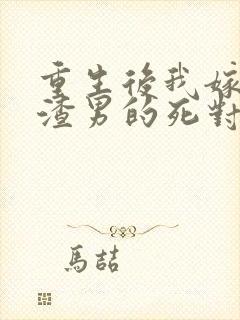 重生後我嫁
渣男的死對
馬喆